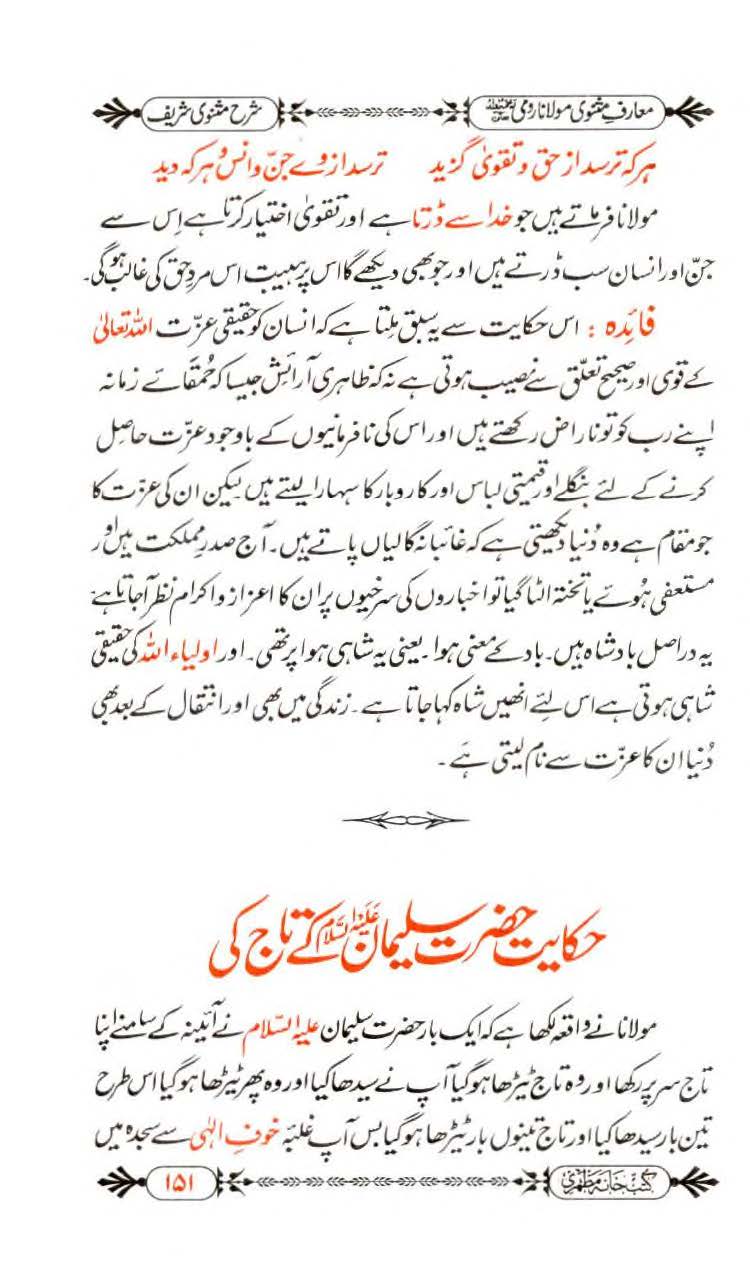 معارفِ مثنوی مولانا رومی رحمۃ اللہ علیہ
شرح مثنوی شریف
ہر کہ ترسد از حق و تقویٰ گزید ترسد از وے جنّ و انس و ہر کہ دید
مولانا فرماتے ہیں جو خدا سے ڈرتا ہے اور تقویٰ اختیار کرتا ہے اِس سے
جنّ اور انسان سب ڈرتے ہیں اور جو بھی دیکھے گا اس پر ہیبت اس مردِ حق کی غالب ہوگی۔
فائدہ : اس حکایت سے یہ سبق مِلتا ہے کہ انسان کو حقیقی عزّت اللہ تعالیٰ
کے قوی اور صحیح تعلّق سے نصیب ہوتی ہے نہ کہ ظاہری آرائش جیسا کہ حُمَقائے زمانہ
اپنے رب کو تو ناراض رکھتے ہیں اور اس کی نافرمانیوں کے باوجود عزّت حاصِل
کرنے کے لئے بنگلے اور قیمتی لباس اور کاروبار کا سہارا لیتے ہیں لیکن ان کی عزّت کا
جو مقام ہے وہ دُنیا دیکھتی ہے کہ غائبانہ گالیاں پاتے ہیں۔ آج صدرِ مملکت ہیں اور
مستعفی ہُوئے یا تختہ الٹا گیا تو اخباروں کی سرخیوں پر ان کا اعزاز و اکرام نظر آجاتا ہے
یہ دراصل بادشاہ ہیں۔ باد کے معنی ہوا۔ یعنی یہ شاہی ہوا پر تھی۔ اور اولیاء اللہ کی حقیقی
شاہی ہوتی ہے اس لئے انھیں شاہ کہا جاتا ہے۔ زندگی میں بھی اور انتقال کے بعد بھی
دُنیا ان کا عزّت سے نام لیتی ہَے ۔
حکایت حضرت سلیمان علیہ السّلام کے تاج کی
مولانا نے واقعہ لکھا ہے کہ ایک بار حضرت سلیمان علیہ السّلام نے آئینہ کے سامنے اپنا
تاج سر پر رکھا اور وہ تاج ٹیڑھا ہوگیا آپ نے سیدھا کیا اور وہ پھر ٹیڑھا ہوگیا اس طرح
تین بار سیدھا کیا اور تاج تینوں بار ٹیڑھا ہوگیا بس آپ غلبۂ خوفِ الٰہی سے سجدہ میں
کتب خانہ مظہری
۱۵۱